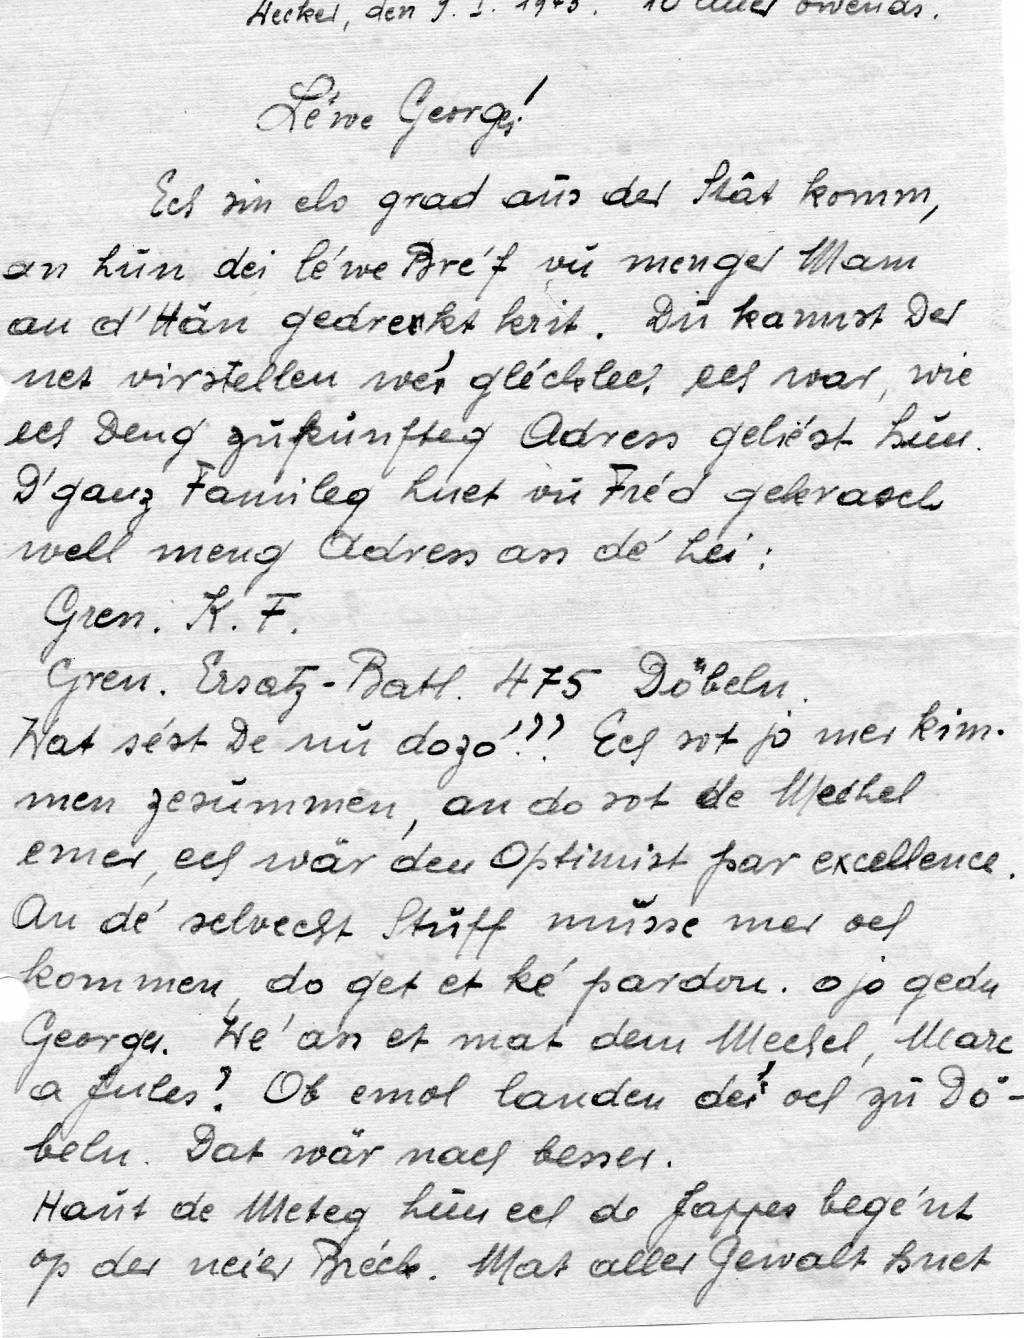 Hecker, den 9. I. 1943. 10 Auer owends.
Léwe Georges!
Ech sin elo grad aus der Stât komm,
an hŭn dei léwe Bréf vŭ menger Mam
an d'Hän gedreckt krit. Dŭ kannst Der
net virstellen wéi glécklech ech war, wie
ech Deng zŭkünfteg Adress geliést hŭn.
D'ganz Famileg huet vŭ Fréd gekrasch
well meng Adress ass dé hei:
Gren. K. F.
Gren. Ersatz-Batl. 475 Döbeln.
Wat sést De nŭ dozó!?? Ech sot jo mer kim-
men zesŭmmen, an do sot de Mechel
emer, ech wär den Optimist par excellence.
An dé selvecht Stŭff mŭsse mer och
kommen, do get et ké pardon. o jo gedu
Georges. Wé ass et mat dem Mechel, Marc
a Jules? Ob emol landen déi och zŭ Dö-
beln. Dat wär nach besser.
Haŭt de Meteg hŭn ech de Jappes begént
op der neier Bréck. Mat aller Gewalt huet